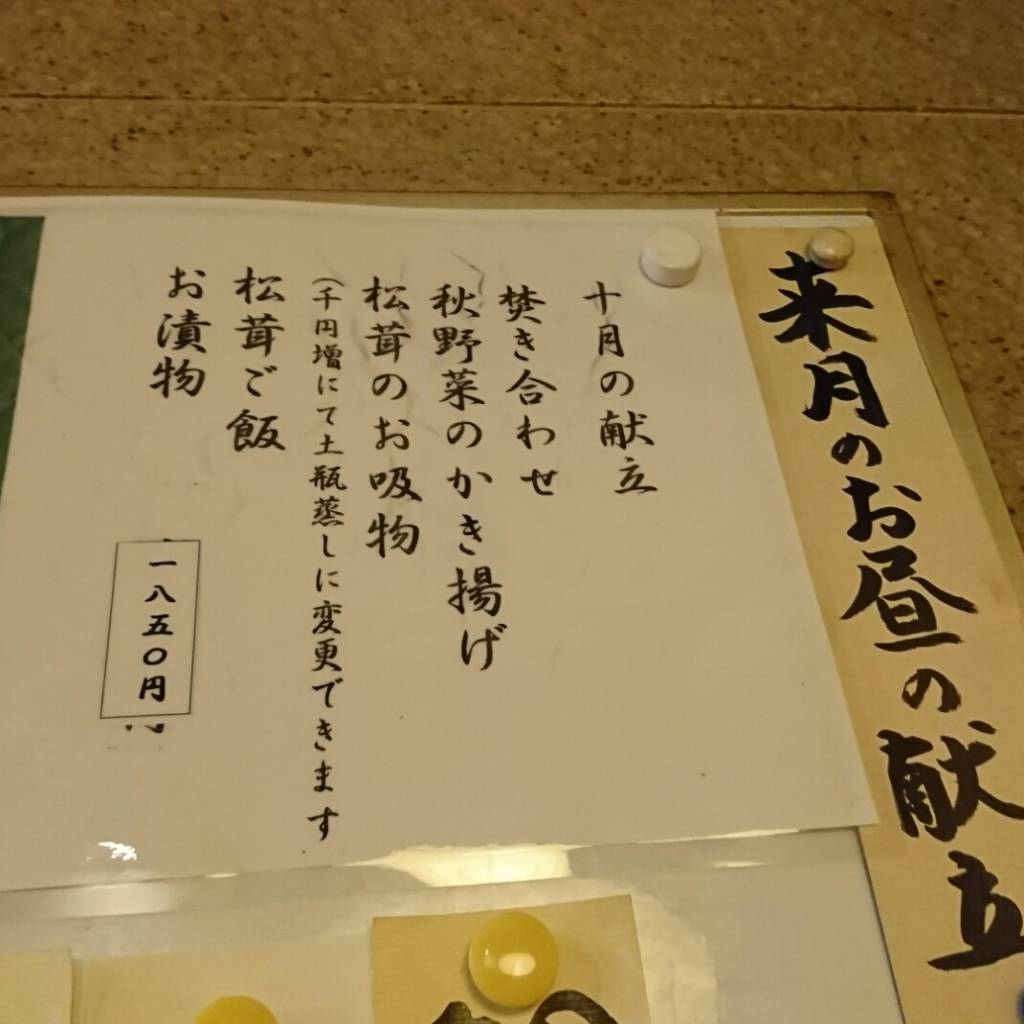 来月のお昼の献立
十月の献立
焚き合わせ
秋野菜のかき揚げ
松茸のお吸物
(千円増にて土瓶蒸しに変更できます
松茸ご飯
お漬物
一八五〇円